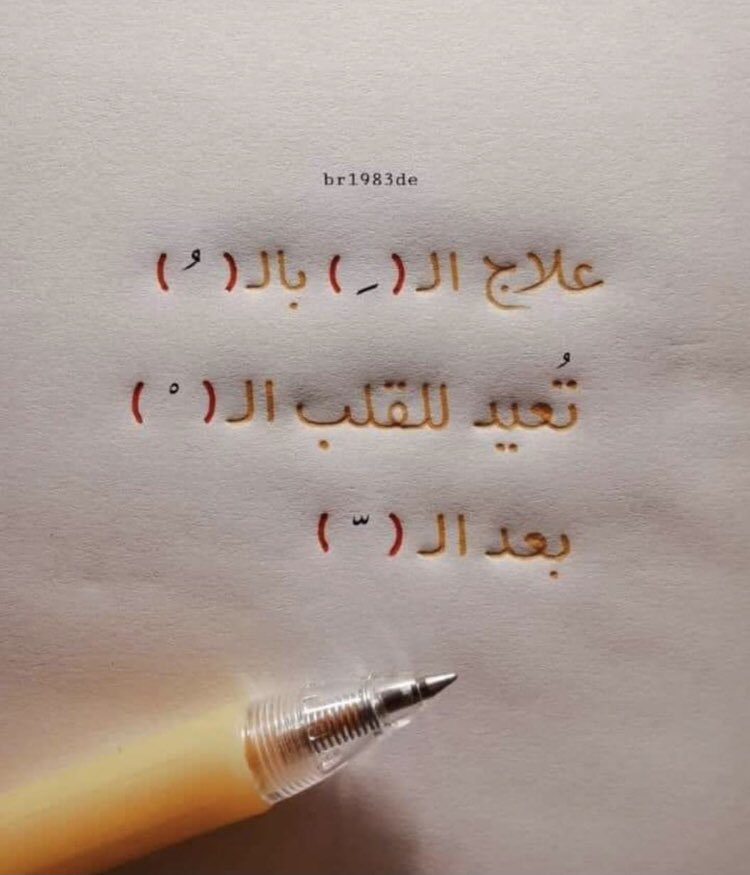 br1983de
علاج الـ ( ِ ) بالـ ( ُ )
تُعيد للقلب الـ ( ْ )
بعد الـ ( ّ )